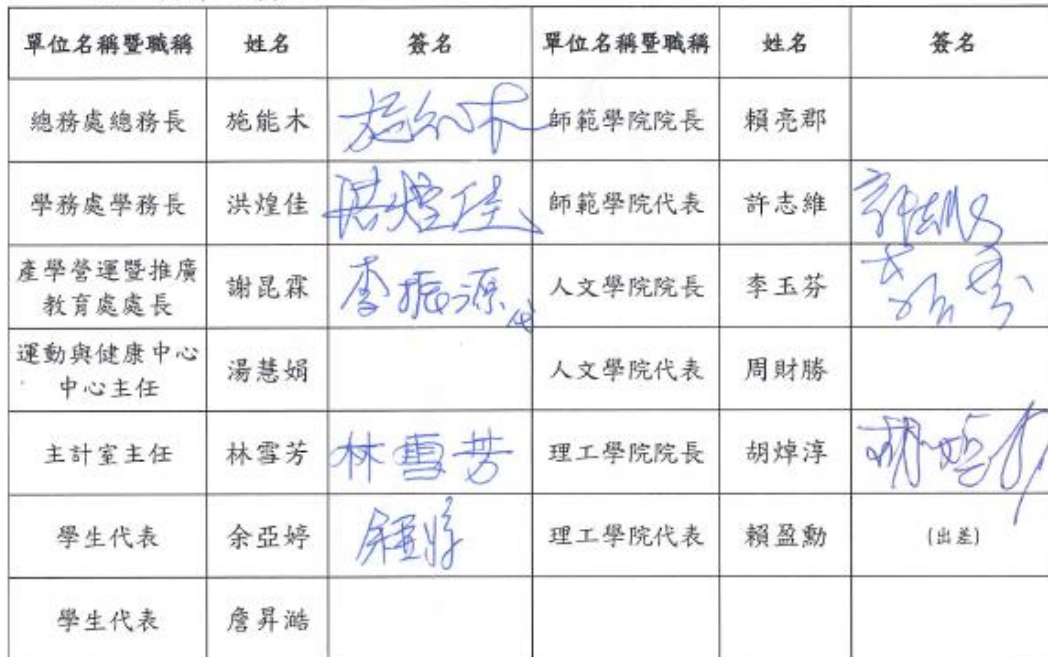 單位名稱暨職稱 姓名 簽名 單位名稱暨職稱 姓名 簽名
總務處總務長 施能木 施能木 師範學院院長 賴亮郡
學務處學務長 洪煌佳 洪煌佳 師範學院代表 許志維 許志維
產學營運暨推廣
教育處處長 謝昆霖 李振源代 人文學院院長 李玉芬
運動與健康中心
中心主任 湯慧娟 人文學院代表 周財勝
主計室主任 林雪芳 林雪芳 理工學院院長 胡焯淳
學生代表 余亞婷 余亞婷 理工學院代表 賴盈勳 (出差)
學生代表 詹昇澔